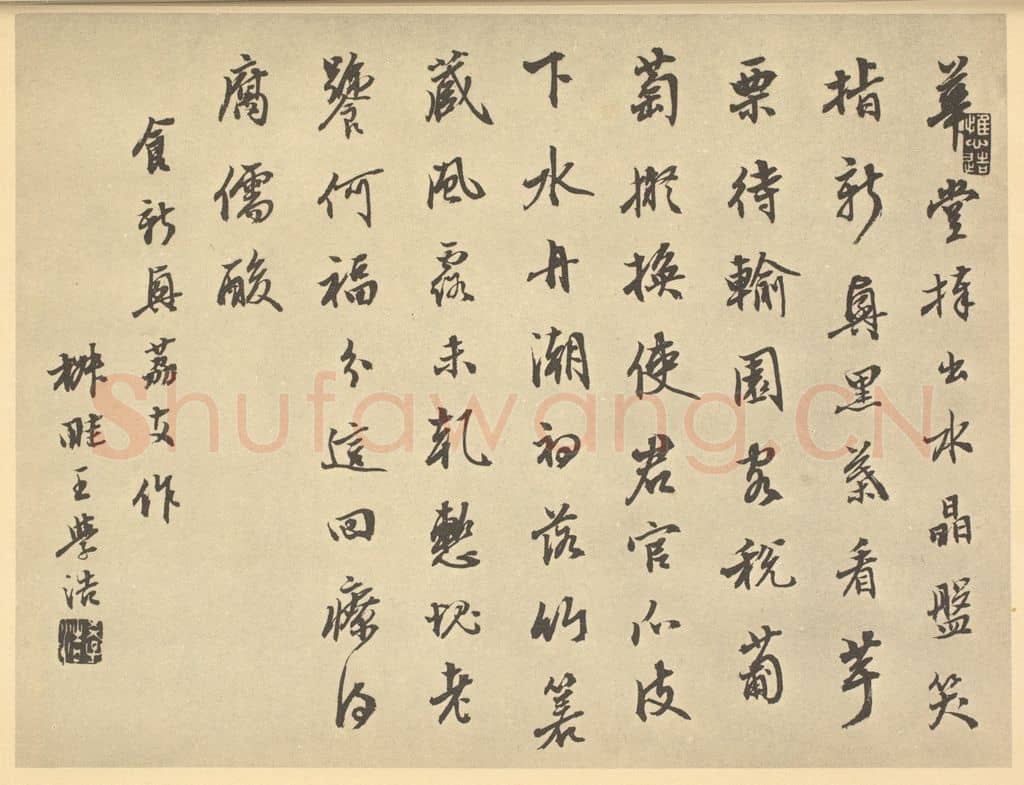 華堂捧出水晶盤笑
指新興黑葉看芋
栗待輸園客稅葡
萄擬換使君官瓜皮
下水舟潮初落竹篛
藏風露未乾慙愧老
饕何福分這回療得
腐儒酸
食新興荔支作
椒畦王學浩
學浩
惟心造
Shufawang.CN